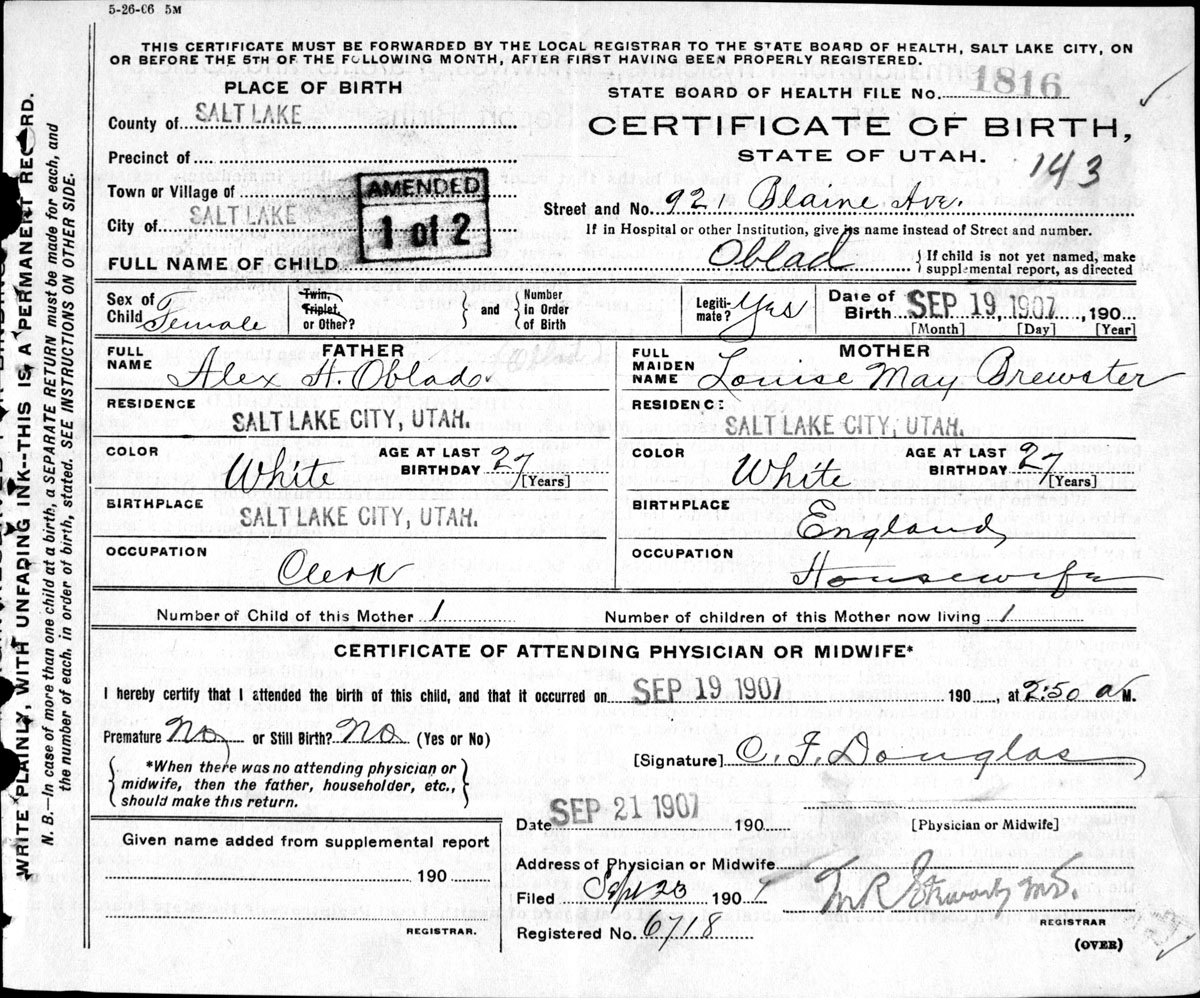 5-26-06 5M
THIS CERTIFICATE MUST BE FORWARDED BY THE LOCAL REGISTRAR TO THE STATE BOARD OF HEALTH, SALT LAKE CITY, ON
OR BEFORE THE 5TH OF THE FOLLOWING MONTH, AFTER FIRST HAVING BEEN PROPERLY REGISTERED.
PLACE OF BIRTH
STATE BOARD OF HEALTH FILE No. 1816
County of SALT LAKE
CERTIFICATE OF BIRTH,
Precinct of
STATE OF UTAH.
143
Town or Village of
AMENDED
1 of 2
Street and No. 921 Blaine Ave.
City of SALT LAKE
If in Hospital or other Institution, give its name instead of Street and number.
FULL NAME OF CHILD Oblad
If child is not yet named, make
supplemental report, as directed
Sex of
Child Female
Twin,
Triplet,
or Other?
and
Number
in Order
of Birth
Legiti-
mate? Yes
Date of
Birth SEP 19 1907, 190
[Month] [Day] [Year]
FATHER
FULL
NAME Alex H. Oblad.
MOTHER
FULL
MAIDEN
NAME Louise May Brewster
RESIDENCE
SALT LAKE CITY, UTAH.
RESIDENCE
SALT LAKE CITY, UTAH.
COLOR White
AGE AT LAST
BIRTHDAY 27
[Years]
COLOR White
AGE AT LAST
BIRTHDAY 27
[Years]
BIRTHPLACE
SALT LAKE CITY, UTAH.
BIRTHPLACE
England
OCCUPATION
Clerk
OCCUPATION
Housewife
Number of Child of this Mother 1
Number of children of this Mother now living 1
CERTIFICATE OF ATTENDING PHYSICIAN OR MIDWIFE*
I hereby certify that I attended the birth of this child, and that it occurred on SEP 19 1907 190, at 2:50 a M.
Premature No or Still Birth? No (Yes or No)
[Signature] C. F. Douglas
*When there was no attending physician or
midwife, then the father, householder, etc.,
should make this return.
Date SEP 21 1907 190
[Physician or Midwife]
Given name added from supplemental report
190
REGISTRAR.
Address of Physician or Midwife
Filed Sept 23 1907
M.D.
REGISTRAR
Registered No. 6718
(OVER)
WRITE PLANLY, WITH UNFADING INK--THIS IS A PERMANENT RECORD.
N. B.—In case of more than one child at a birth, a SEPARATE RETURN must be made for each, and
the number of each, in order of birth, stated. SEE INSTRUCTIONS ON OTHER SIDE.